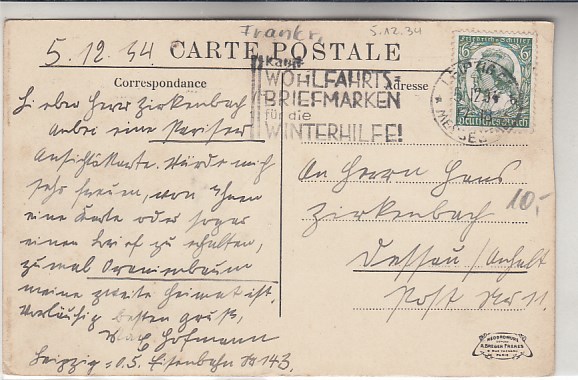 Frankr.
5.12.34
5.12.34
CARTE POSTALE
Correspondance
Adresse
Kauft
WOHLFAHRTS=
BRIEFMARKEN
für die
WINTERHILFE!
Friedrich Schiller
6
6
Deutsches Reich
LEIPZIG
MESSESTADT
Lieber Herr Zirkenbach!
Anbei eine Pariser
Ansichtskarte. Würde mich
sehr freuen, von Ihnen
eine Karte oder sogar
einen Brief zu erhalten,
zumal Oranienbaum
meine zweite Heimat ist.
Vorläufig besten Gruß,
Hofmann
Leipzig=O5. Eisenbahnstr 143.
An Herrn Hans
Zirkenbach
10,-
Dessau/Anhalt
Post Nr 11.
A. BREGER FRÈRES
PARIS